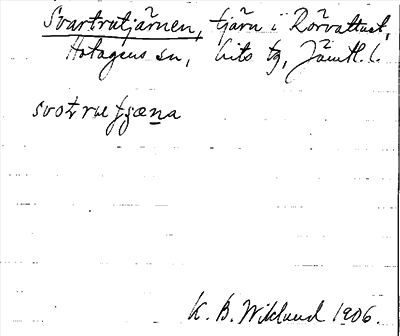 Svartrutjärnen, tjärn i Rörvattnet,
Hotagens sn, Lits tg, Jämtl. l.
svoṯruetjæna
K. B. Wiklund 1906.